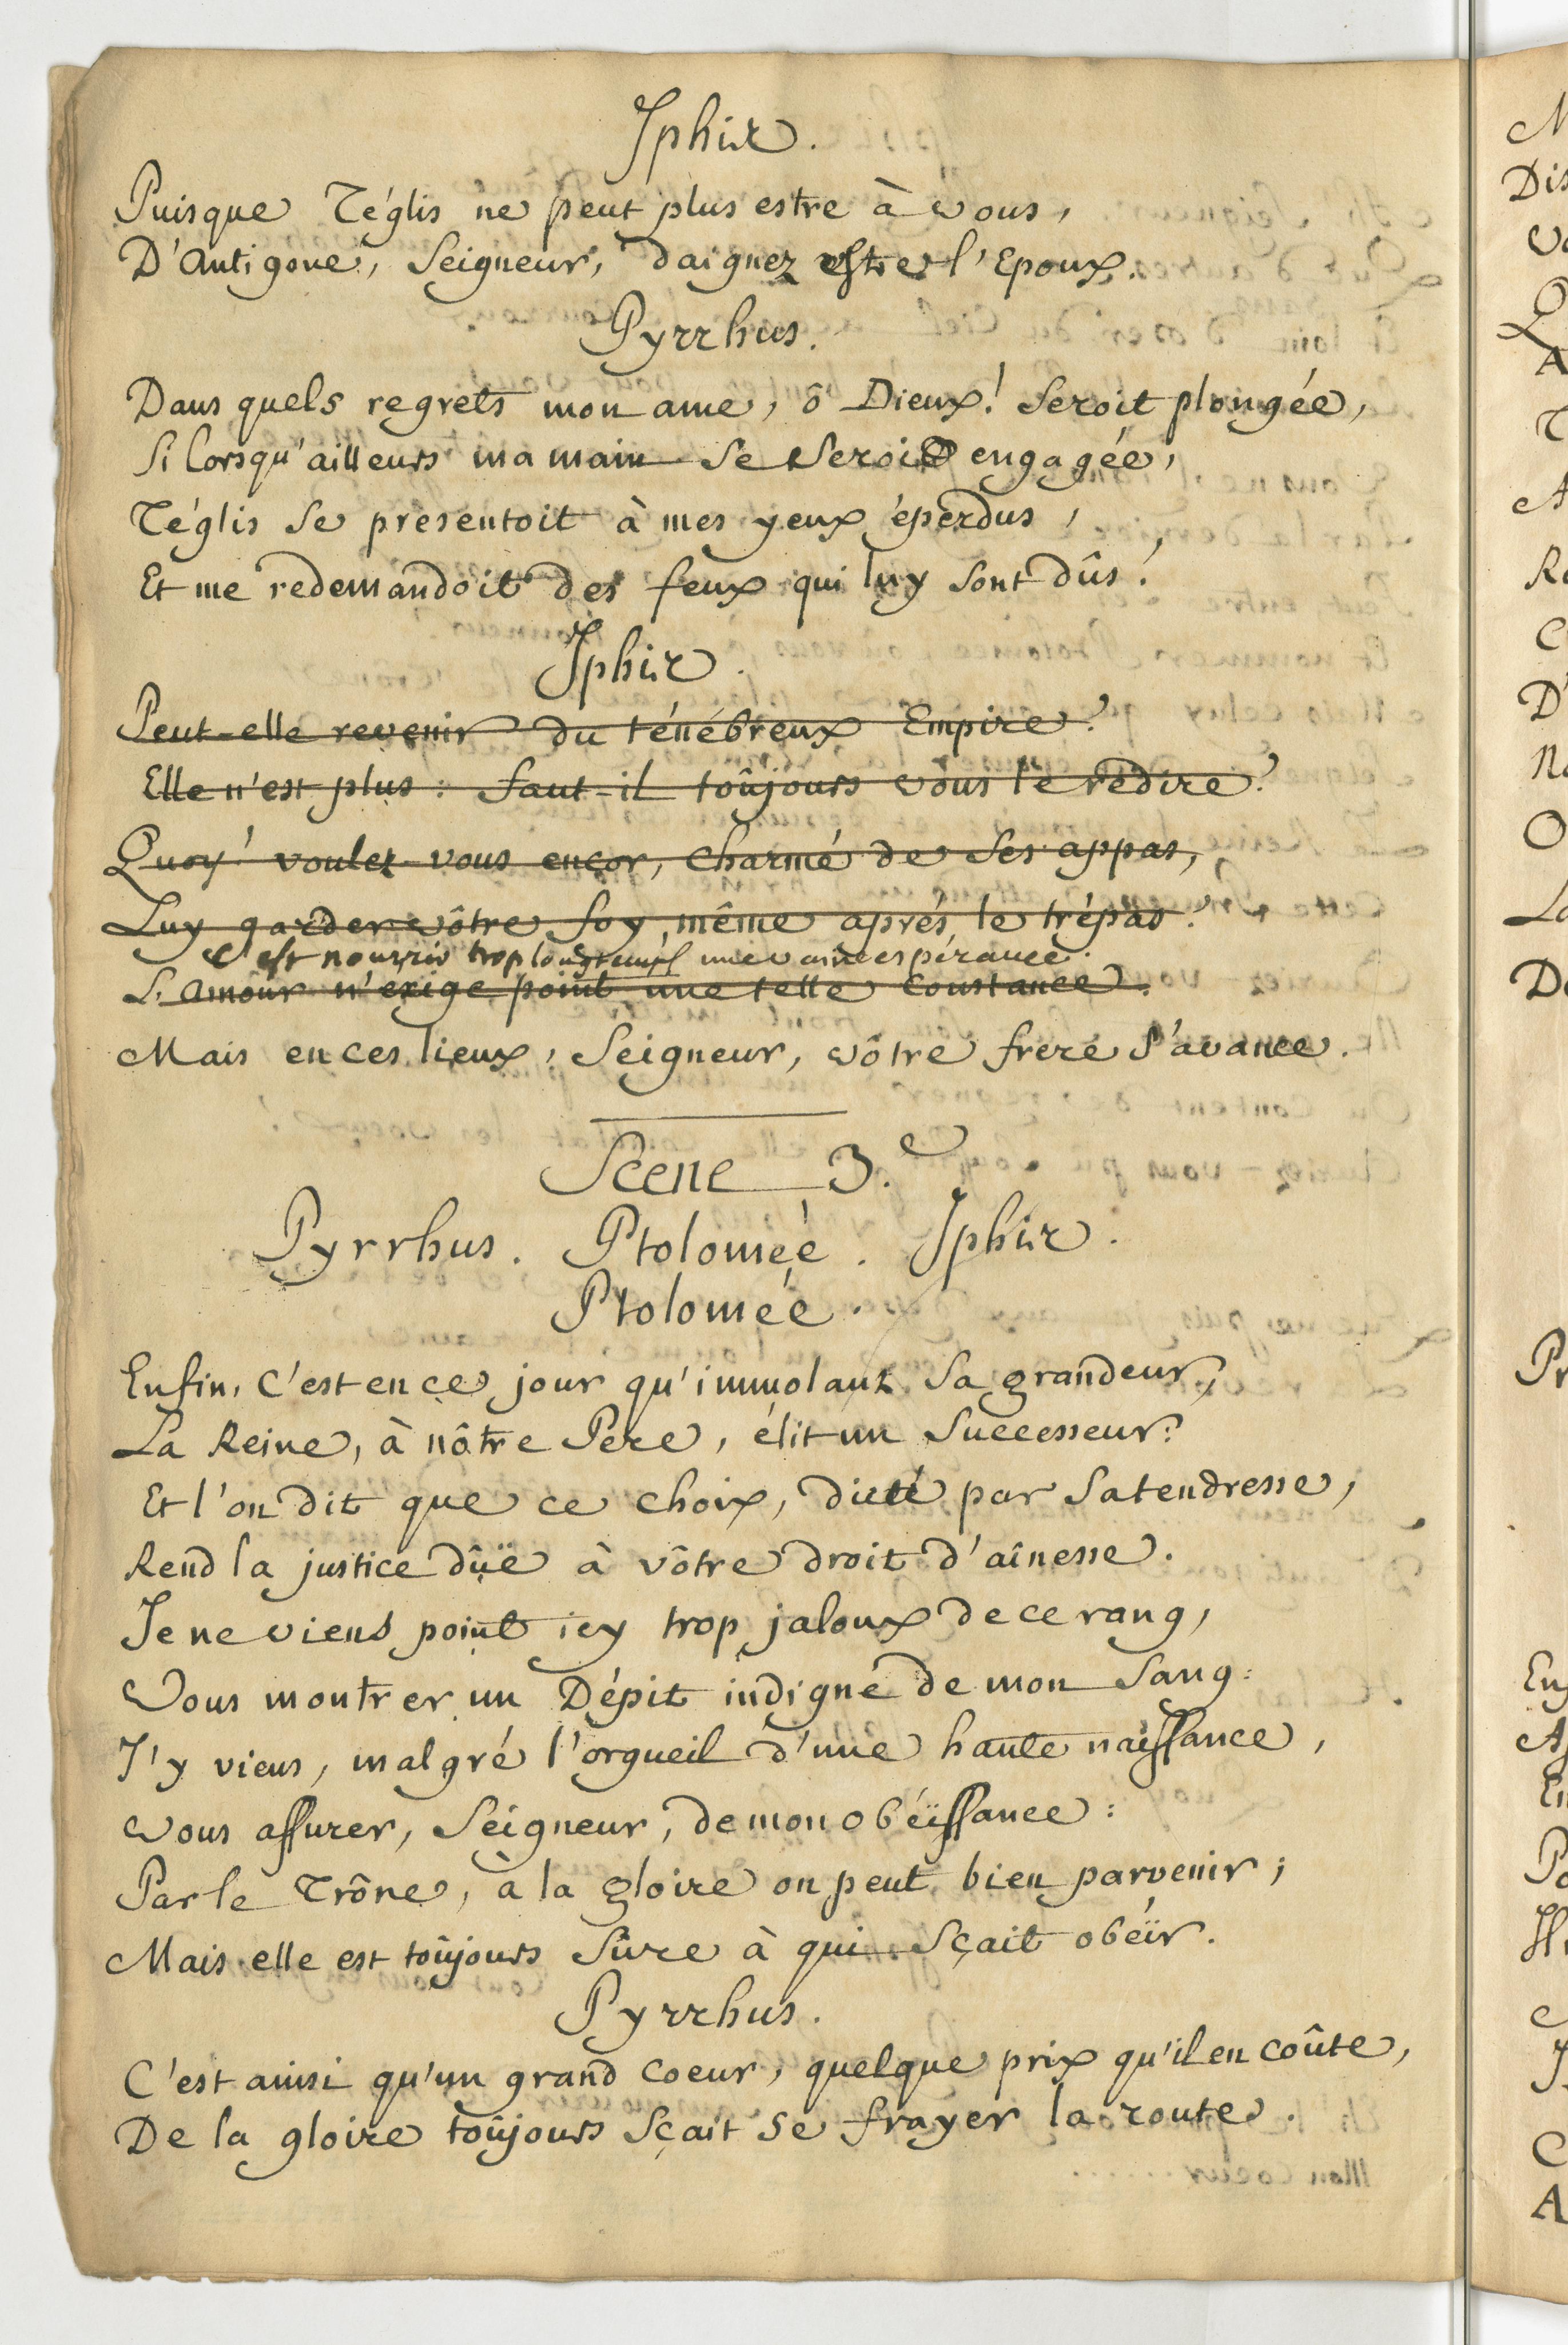 Iphis.
Puisque Téglis ne peut plus estre à vous,
D'Antigone, Seigneur, daignez estre l'Epoux.
Pyrrhus.
Dans quels regrets mon ame, ô Dieux! seroit plongée,
Si lorsqu'ailleurs ma main se seroit engagée,
Téglis se presentoit à mes yeux éperdus,
Et me redemandoit des feux qui luy sont dûs!
Iphis.
Peut-elle revenir du ténébreux Empire?
Elle n'est plus: faut-il toûjours vous le redire?
Quoy! voulez-vous encor, charmé de ses appas,
Luy garder vôtre foy, même aprés le trépas?
C'est nourrir trop longtemps une vaine espérance.
L'amour n'exige point une telle constance.
Mais en ces lieux, Seigneur, vôtre frere s'avance.
Scene 3.e
Pyrrhus. Ptolomée. Iphis.
Ptolomée.
Enfin, c'est en ce jour qu'immolant sa grandeur,
La Reine, à nôtre Pere, élit un Successeur?
Et l'on dit que ce choix, dicté par sa tendresse,
Rend la justice dûë à vôtre droit d'aînesse.
Je ne viens point icy trop jaloux de ce rang,
Vous montrer un Dépit indigne de mon sang:
J'y viens, malgré l'orgueil d'une haute naissance,
Vous assurer, Seigneur, de mon obéïssance:
Par le Trône, à la gloire on peut bien parvenir;
Mais elle est toûjours sûre à qui sçait obéïr.
Pyrrhus.
C'est ainsi qu'un grand coeur, quelque prix qu'il en coûte,
De la gloire toûjours sçait se frayer la route.